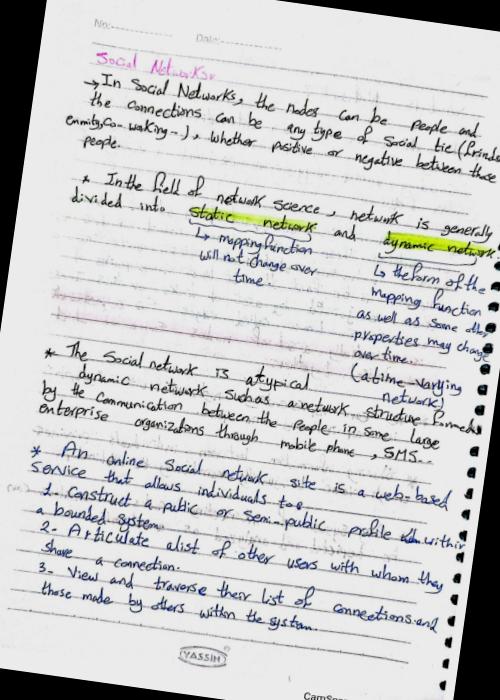 No:
Date:
Social Networks
→ In Social Networks, the nodes can be people and
the connections can be any type of social tie (frinds
enmity, Co-working -), whether positive or negative between those
people.
* In the field of network science, network is generally
divided into static network and dynamic network.
↳ mapping function
will not change over
time.
↳ the form of the
mapping function
as well as some other
properties may change
over time.
(a time-varying
network)
* The Social network is a typical
dynamic network such as a network structure formed
by the Communication between the People in some large
enterprise organizations through mobile phone, SMS..
* An online Social network site is a web-based
Service that allows individuals to:
1. Construct a public or semi-public profile within
a bounded system
2- Articulate a list of other users with whom they
share a connection.
3- View and traverse their list of connections and
those made by others within the system.
YASSIN